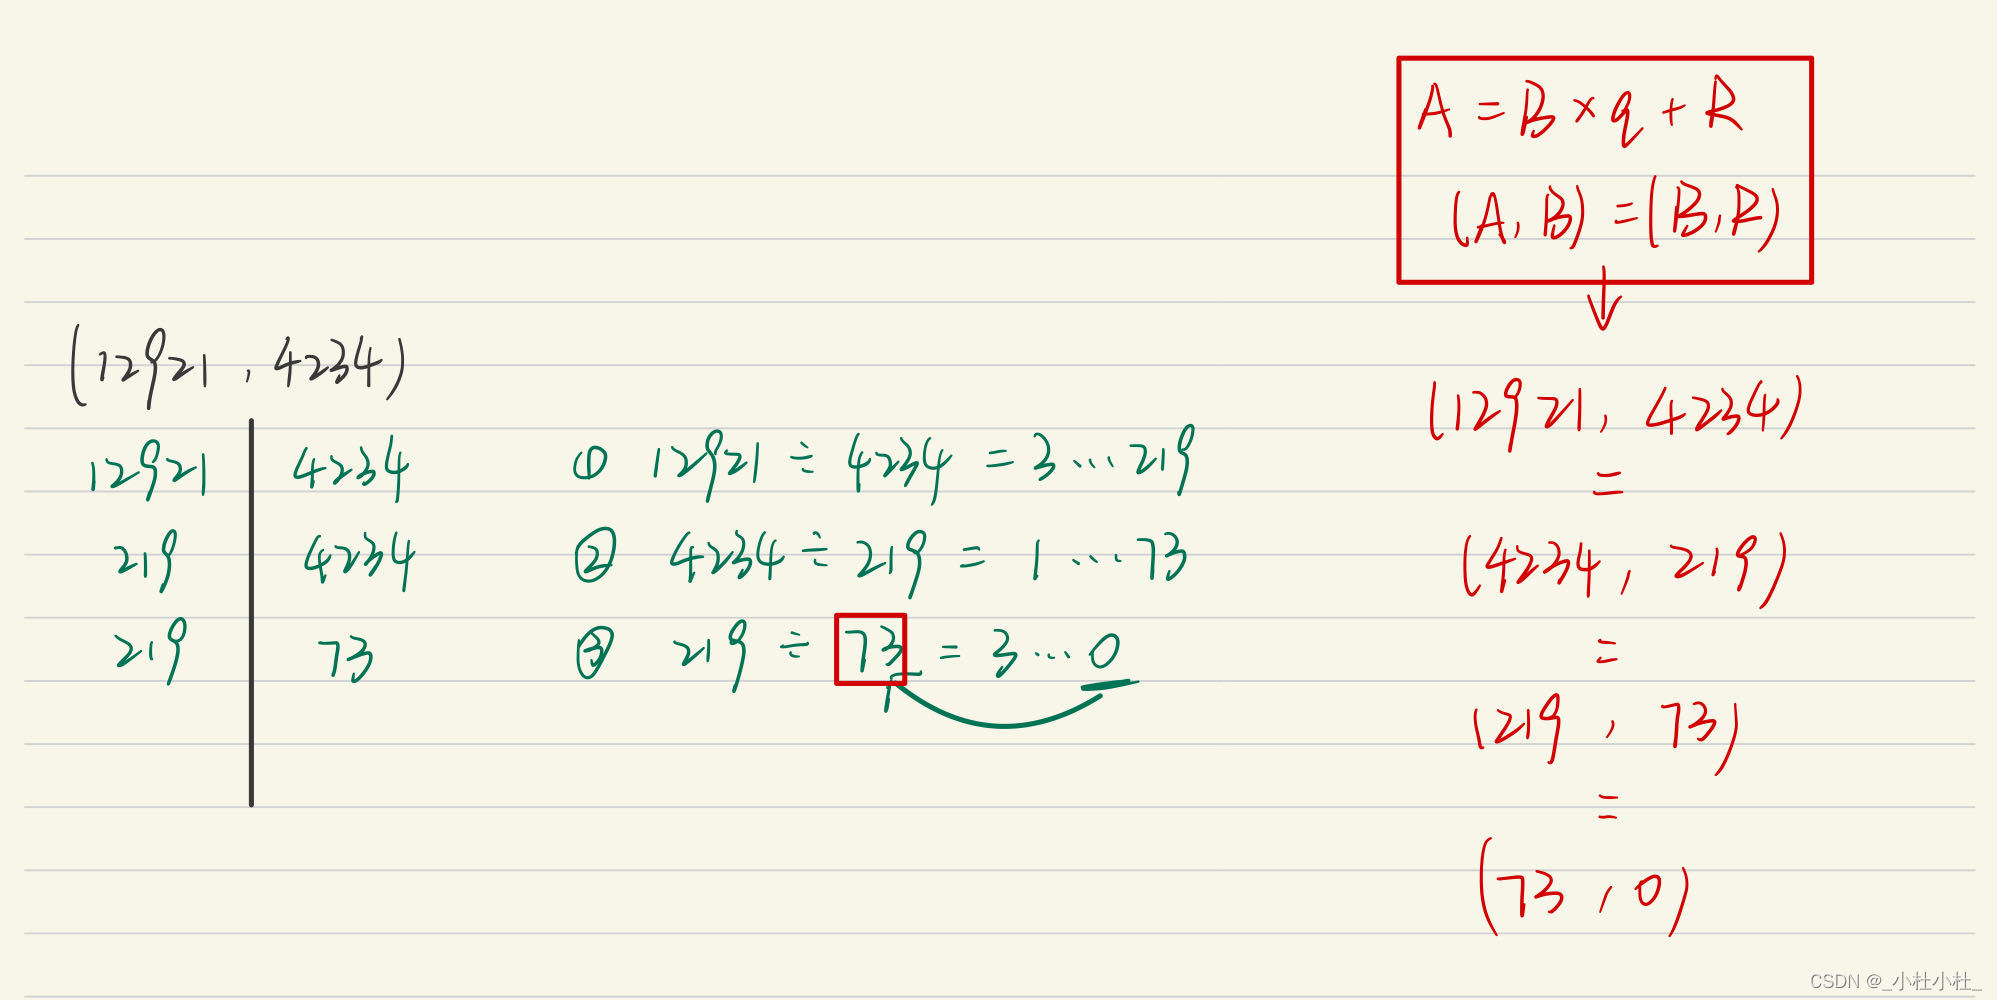 A = B × q + R
(A, B) = (B, R)
(12921, 4234)
12921 4234 ① 12921 ÷ 4234 = 3 ... 219
219 4234 ② 4234 ÷ 219 = 1 ... 73
219 73 ③ 219 ÷ 73 = 3 ... 0
(12921, 4234)
=
(4234, 219)
=
(219, 73)
=
(73, 0)
CSDN @_小杜小杜_